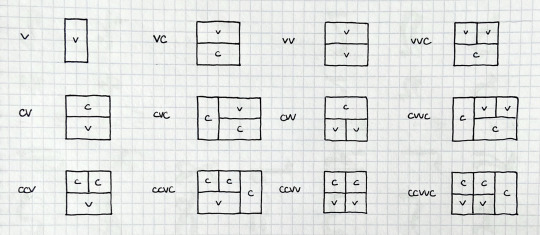 V
V
VC
V
C
VV
V
V
VVC
V V
C
CV
C
V
CVC
C
V
C
CVV
C
V V
CVVC
C
V V
C
CCV
C C
V
CCVC
C C
V
C
CCVV
C C
V V
CCVVC
C C
V V
C